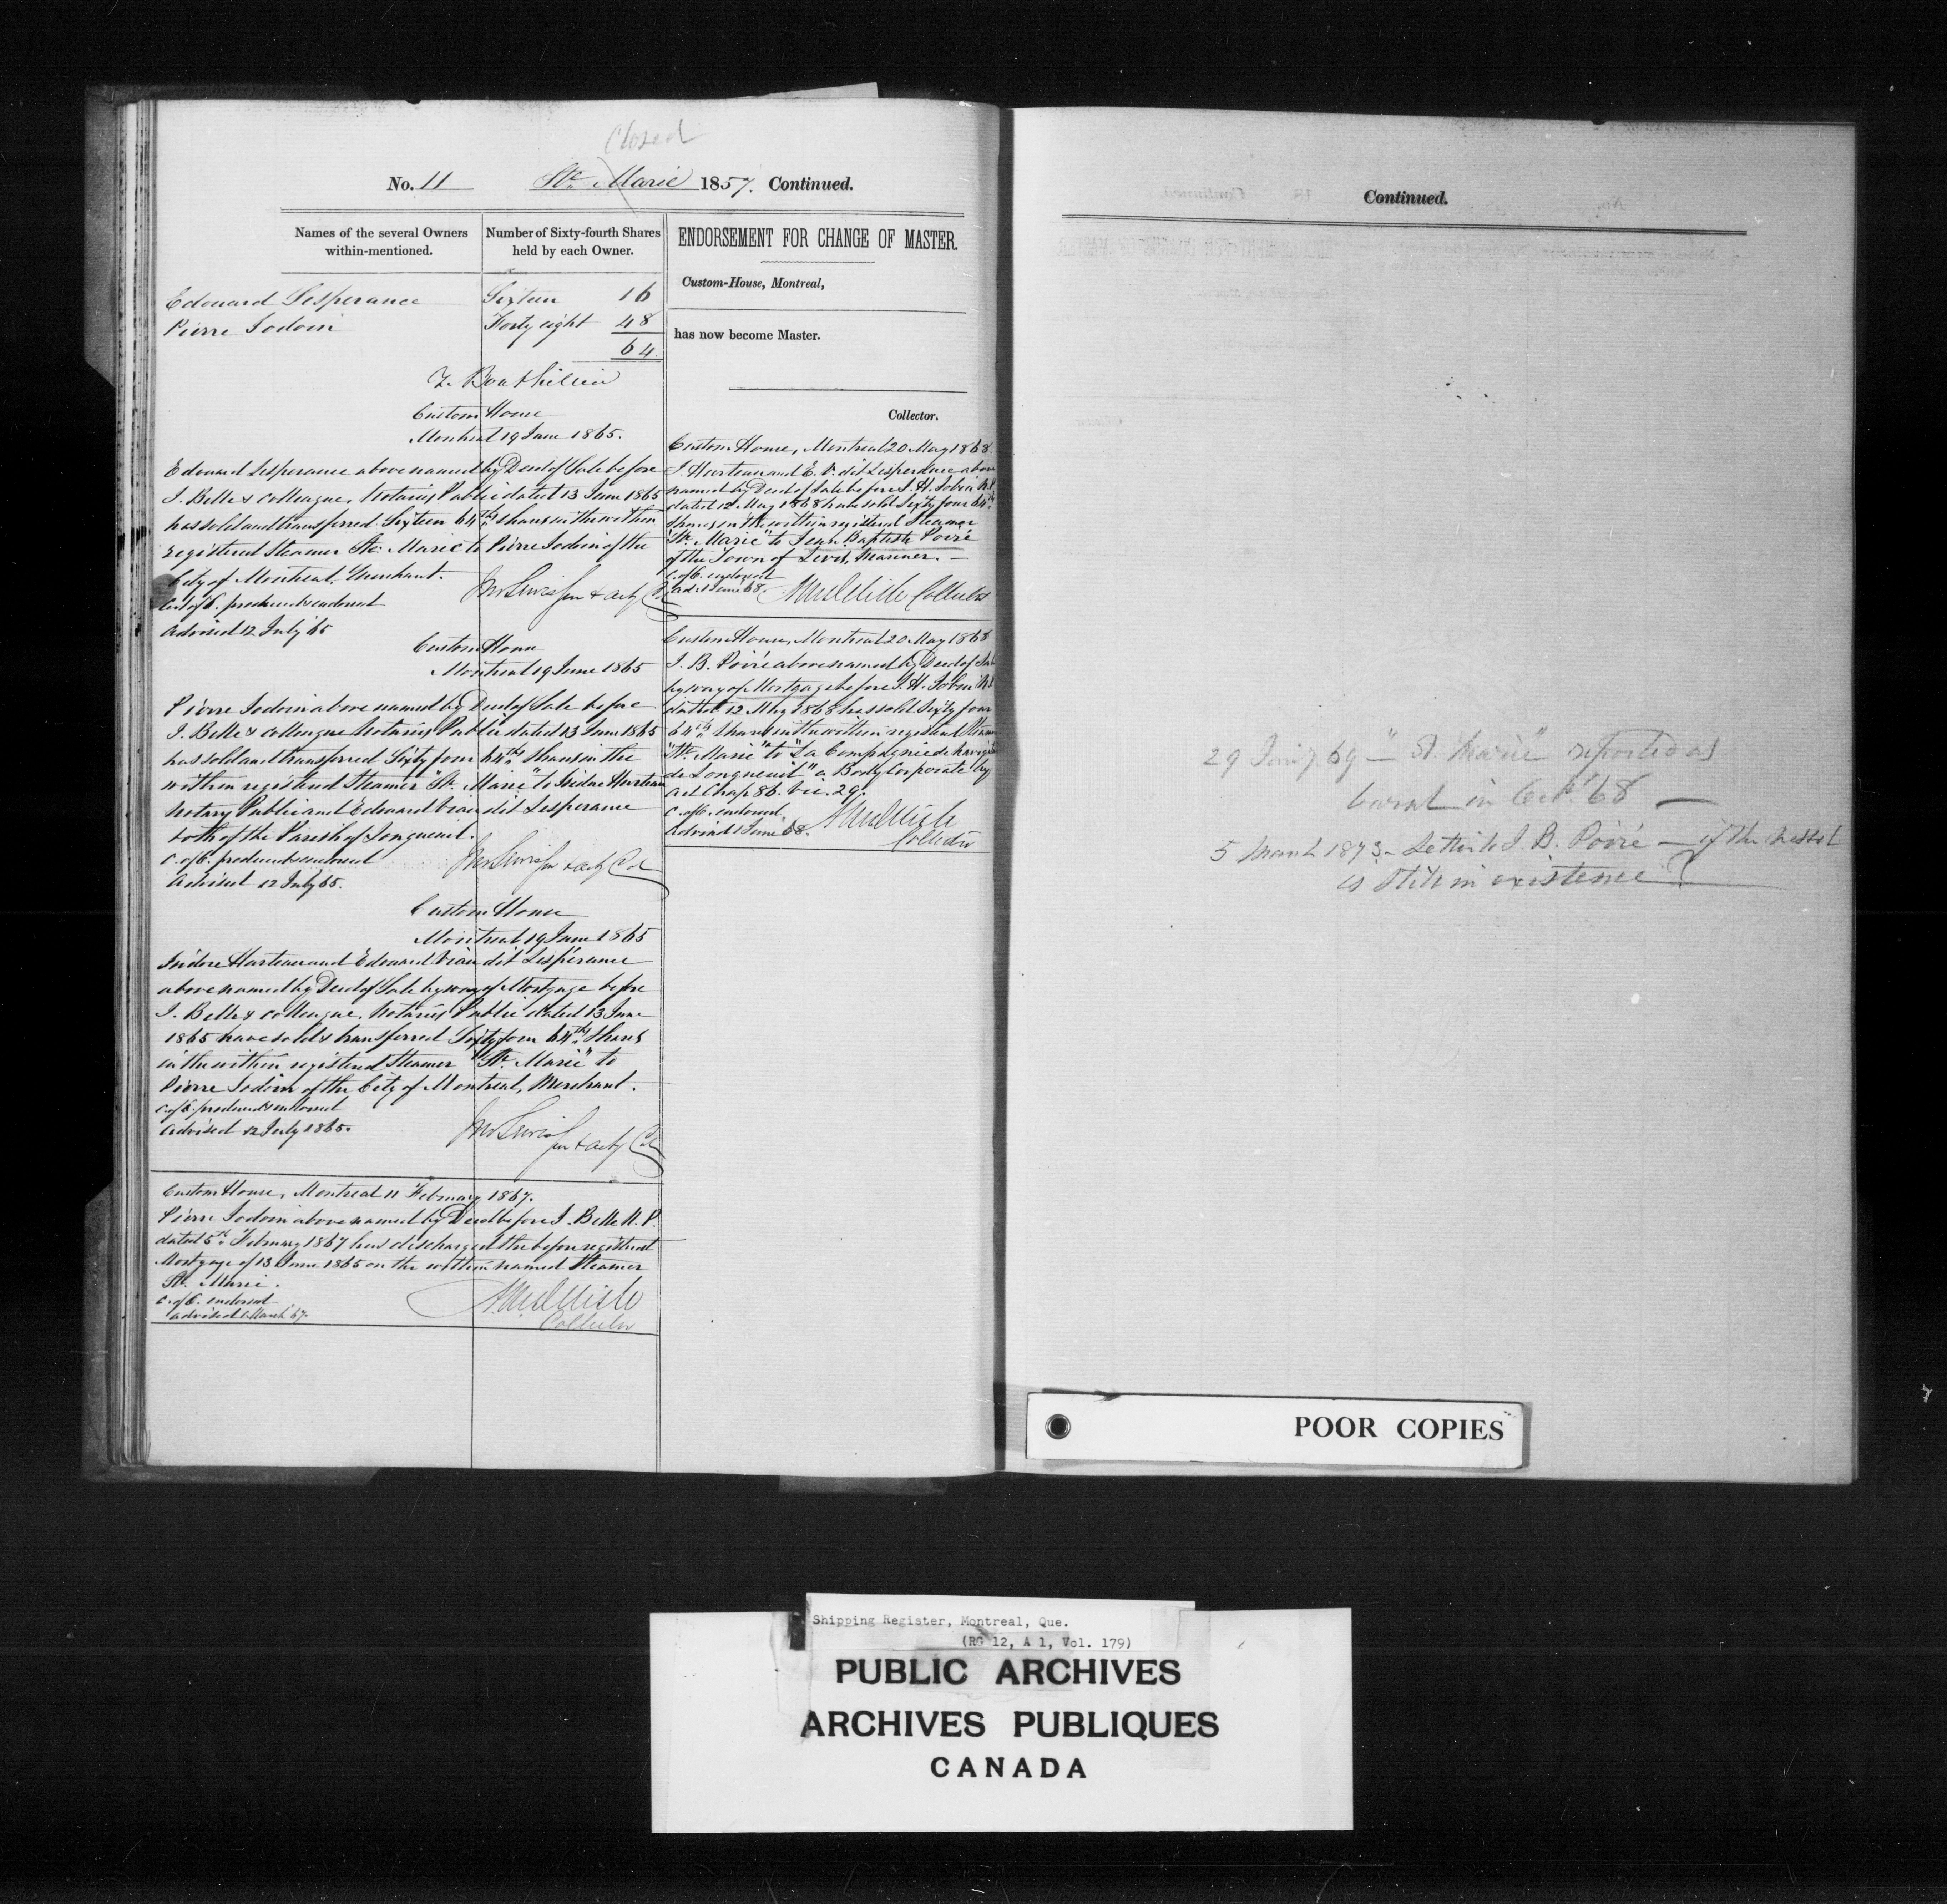 Closed
No. 11 Ste. Marie 1857. Continued.
Names of the several Owners within-mentioned.
Number of Sixty-fourth Shares held by each Owner.
Edouard Lesperance Sixteen 16
Pierre Jodoin Forty eight 48
64.
Custom House
Montreal 19 June 1865.
Edouard Lesperance above named by Deed of Sale before
J. Belle & colleague, Notaries Public dated 13 June 1865
has sold and transferred Sixteen 64ths shares in the within
registered Steamer Ste. Marie to Pierre Jodoin of the
City of Montreal, Merchant.
Cert of C. produced & endorsed
Advised 12 July 65
Custom House
Montreal 19 June 1865
Pierre Jodoin above named by Deed of Sale before
J. Belle & colleague Notaries Public dated 13 June 1865
has sold and transferred Sixty four 64ths shares in the
within registered Steamer "Ste. Marie" to Isidore Hurteau
Notary Public and Edouard Viau dit Lesperance
both of the Parish of Longueuil.
C. of C. produced & endorsed
Advised 12 July 65.
Custom House
Montreal 19 June 1865
Isidore Hurteau and Edouard Viau dit Lespérance
above named by Deed of Sale by way of Mortgage before
J. Belle & colleague, Notaries Public dated 13 June
1865 have sold & transferred Sixty four 64ths Shares
in the within registered Steamer "Ste. Marie" to
Pierre Jodoin of the City of Montreal, Merchant.
C. of C. produced & endorsed
Advised 12 July 1865.
Custom House, Montreal 11 February 1867.
Pierre Jodoin above named by Deed before J. Belle N.P.
dated 5th February 1867 has discharged the before registered
Mortgage of 13 June 1865 on the within named Steamer
Ste. Marie.
C. of C. endorsed
advised 1 March 67.
Collector
ENDORSEMENT FOR CHANGE OF MASTER.
Custom-House, Montreal,
has now become Master.
Collector.
Custom House, Montreal 20 May 1868.
I. Hurteau and E. V. dit Lesperance above
named by Deed of Sale before N.P.
dated 12 May 1868 have sold Sixty four 64ths
shares in the within registered Steamer
"Ste. Marie" to Jean Baptiste Poiré
of the Town of Levis, Mariner. —
C. of C. endorsed
Adv 1 June 68.
Collector
Custom House, Montreal 20 May 1868
J. B. Poiré above named by Deed of Sale
by way of Mortgage before N.P.
dated 12 May 1868 has sold Sixty four
64ths shares in the within registered Steamer
"Ste. Marie" to "La Compagnie de Navigation
de Longueuil" a Body Corporate by
Act Chap 86. Vic. 29.
C. of C. endorsed
Advised 1 June 68.
Collector
Continued.
29 Jany 69 — "St. Marie" reported as
burnt in Oct. '68 —
5 March 1873 — Letter to J. B. Poiré — if the vessel
is still in existence?
POOR COPIES
Shipping Register, Montreal, Que.
(RG 12, A 1, Vol. 179)
PUBLIC ARCHIVES
ARCHIVES PUBLIQUES
CANADA